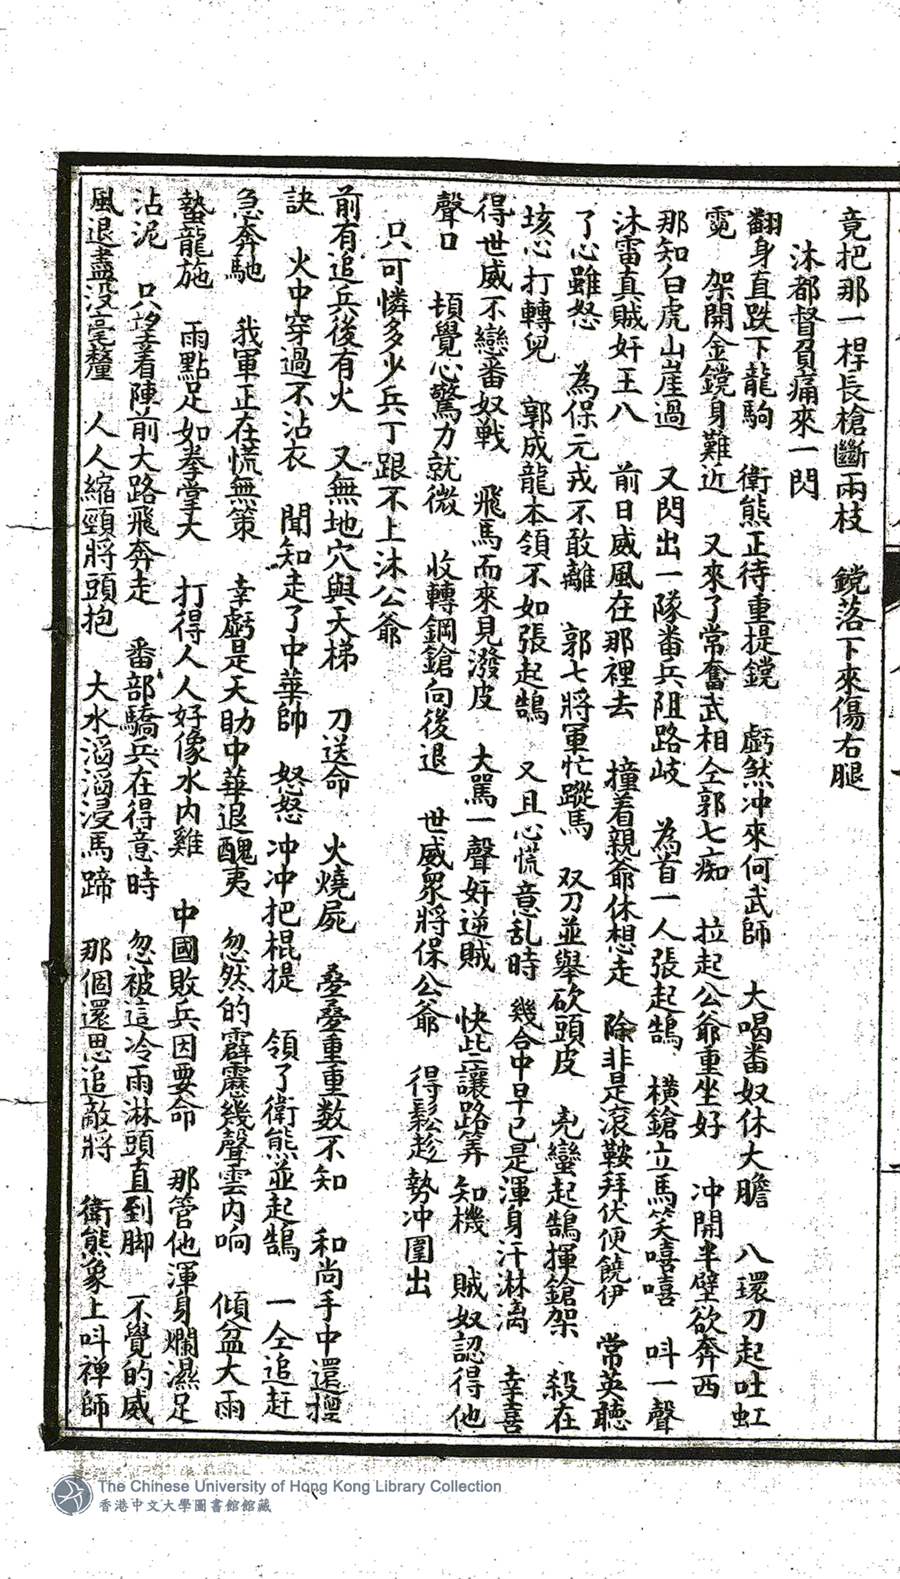 竟把那一桿長槍斷兩枝　鐃落下來傷右腿
沐都督負痛來一閃
翻身直跌下龍駒　衛熊正待重提鐃　虧煞冲來何武師　大喝番奴休大膽　八環刀起吐虹
霓　架開金鐃身難近　又來了常奮武相仝郭七痴　拉起公爺重坐好　冲開半壁欲奔西
那知白虎山崖過　又閃出一隊番兵阻路岐　為首一人張起鵠　橫鎗立馬笑嘻嘻　呌一聲
沐雷真賊奸王八　前日威風在那裡去　撞着親爺休想走　除非是滾鞍拜伏便饒伊　常英聽
了心雖怒　為保元戎不敢離　郭七將軍忙蹤馬　双刀並舉砍頭皮　兇蠻起鵠揮鎗架　殺在
垓心打轉兒　郭成龍本領不如張起鵠　又且心慌意乱時　幾合中早已是渾身汗淋漓　幸喜
得世威不戀番奴戰　飛馬而來見潑皮　大罵一聲奸逆賊　快些讓路筭知機　賊奴認得他
聲口　頓覺心驚力就微　收轉鋼鎗向後退　世威衆將保公爺　得鬆趁勢冲圍出
只可憐多少兵丁跟不上沐公爺
前有追兵後有火　又無地穴與天梯　刀送命　火燒屍　叠叠重重数不知　和尚手中還擅
訣　火中穿過不沾衣　聞知走了中華帥　怒怒冲冲把棍提　領了衛熊並起鵠　一仝追赶
急奔馳　我軍正在慌無策　幸虧是天助中華退醜夷　忽然的霹靂幾聲雲内响　傾盆大雨
蟄龍施　雨點足如拳掌大　打得人人好像水内雞　中國敗兵因要命　那管他渾身爛濕足
沾泥　只望着陣前大路飛奔走　番部驕兵在得意時　忽被這冷雨淋頭直到脚　不覺的威
風退盡没毫釐　人人縮頸將頭抱　大水滔滔浸馬蹄　那個還思追敵將　衛熊象上呌禅師
The Chinese University of Hong Kong Library Collection
香港中文大學圖書館館藏